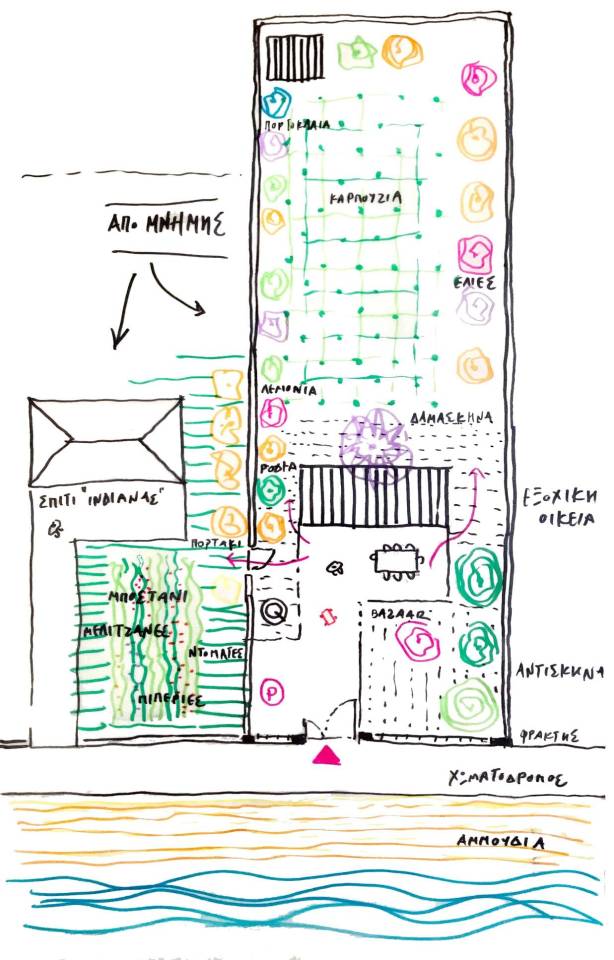 ΠΟΡΤΟΚΑΛΙΑ
ΚΑΡΠΟΥΖΙΑ
ΑΠΟ ΜΝΗΜΗΣ
ΕΛΙΕΣ
ΛΕΜΟΝΙΑ
ΔΑΜΑΣΚΗΝΑ
ΡΟΔΙΑ
ΣΠΙΤΙ "ΙΝΔΙΑΝΑΣ"
ΕΞΟΧΙΚΗ
ΟΙΚΕΙΑ
ΠΟΡΤΑΚΙ
ΜΠΟΣΤΑΝΙ
ΜΕΛΙΤΖΑΝΕΣ
ΝΤΟΜΑΤΕΣ
ΠΙΠΕΡΙΕΣ
P
ΑΝΤΙΣΚΗΝΑ
ΦΡΑΚΤΗΣ
ΧΩΜΑΤΟΔΡΟΜΟΣ
ΑΜΜΟΥΔΙΑ